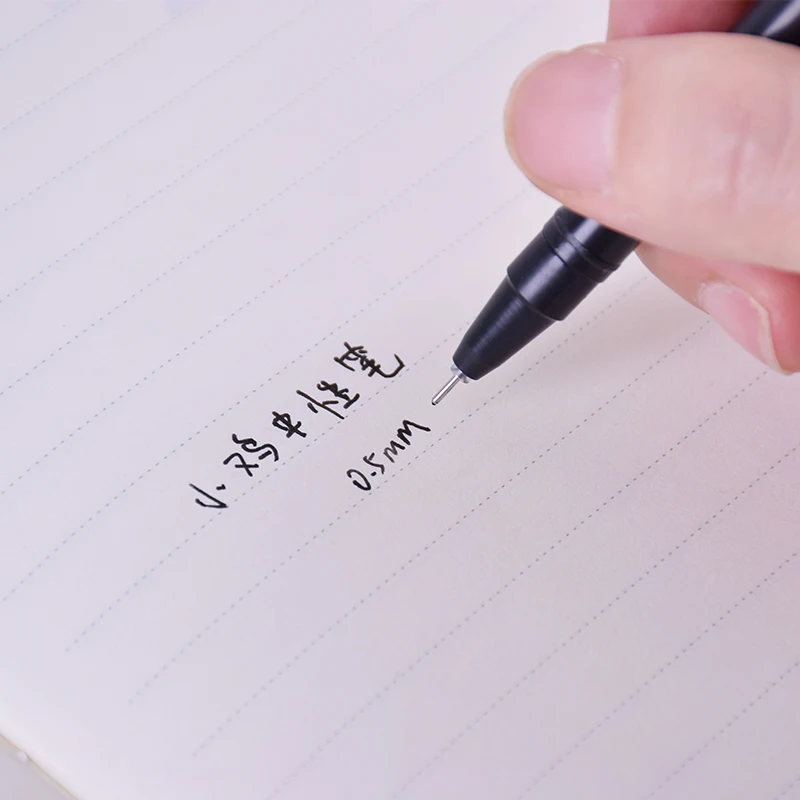 小鸡中性笔
0.5mm